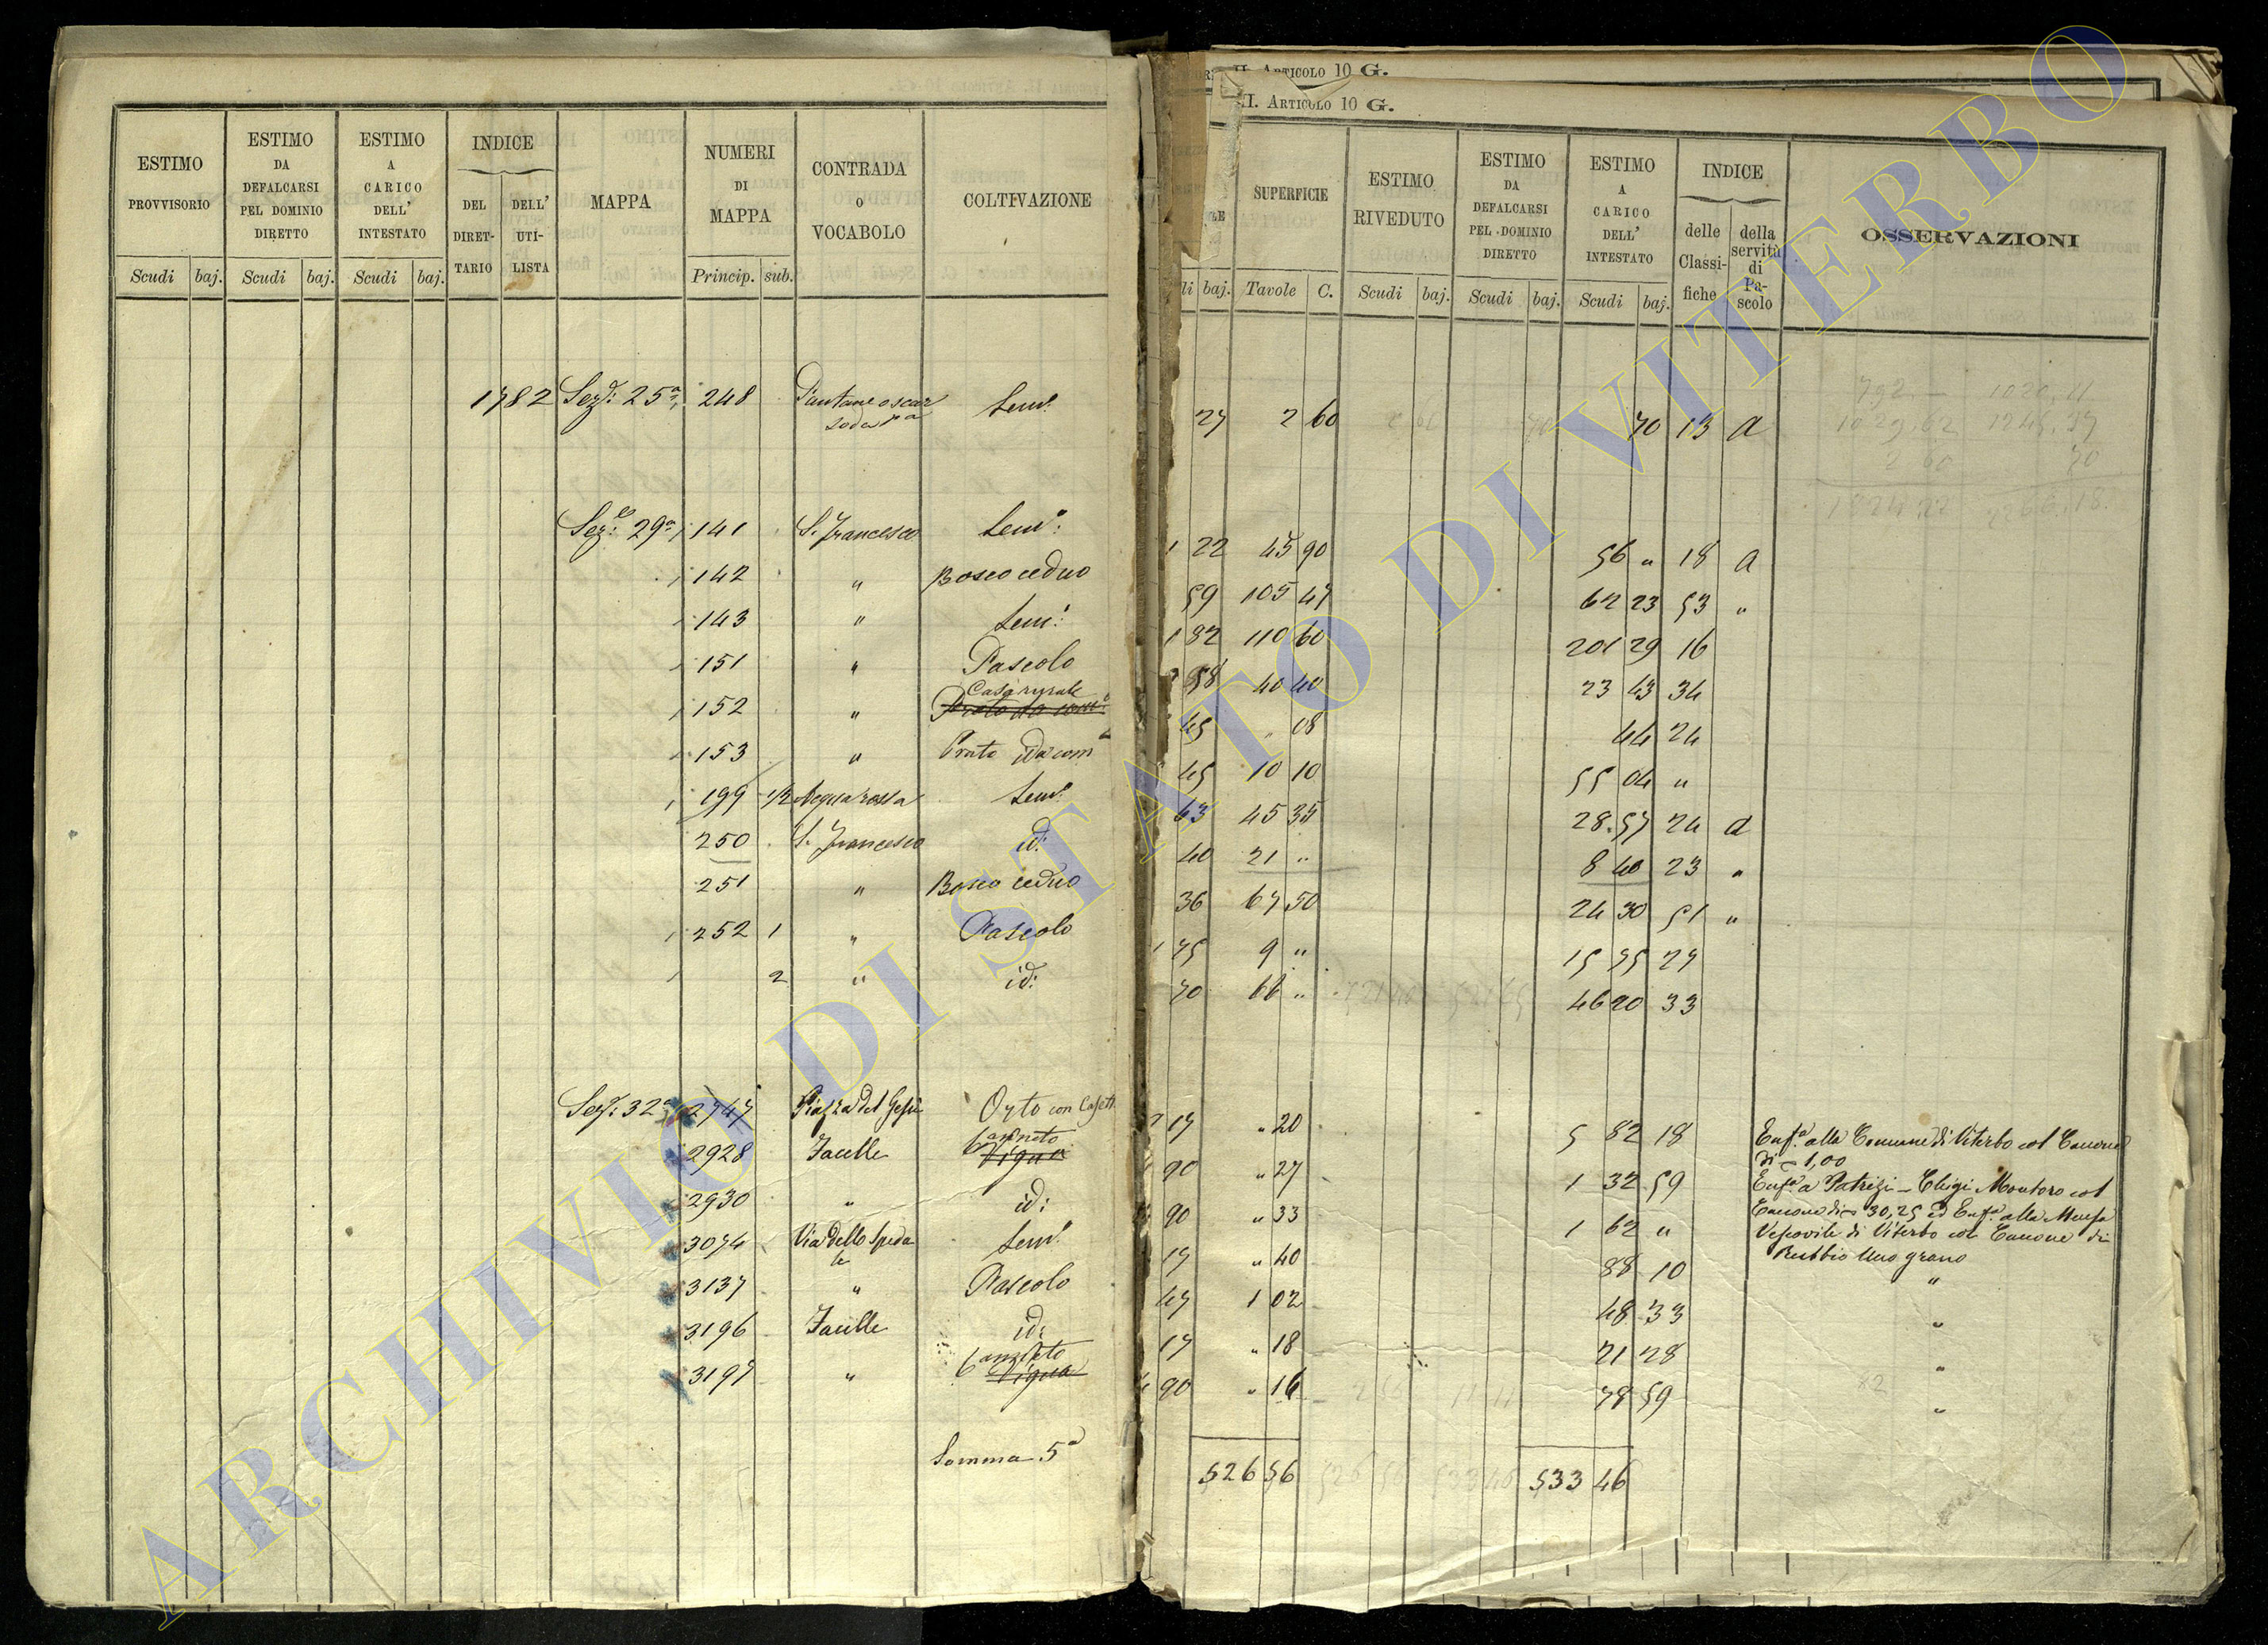 II. ARTICOLO 10 G.
II. ARTICOLO 10 G.
ESTIMO PROVVISORIO
ESTIMO DA DEFALCARSI PEL DOMINIO DIRETTO
ESTIMO A CARICO DELL' INTESTATO
INDICE
DEL DIRET-TARIO
DELL' UTI-LISTA
MAPPA
NUMERI DI MAPPA
CONTRADA o VOCABOLO
COLTIVAZIONE
Scudi baj. Scudi baj. Scudi baj. Princip. sub.
SUPERFICIE
ESTIMO RIVEDUTO
ESTIMO DA DEFALCARSI PEL DOMINIO DIRETTO
ESTIMO A CARICO DELL' INTESTATO
INDICE
delle Classi-fiche
della servitù di Pa-scolo
OSSERVAZIONI
baj. Tavole C. Scudi baj. Scudi baj. Scudi baj.
1782 Sez.e 25a 248 Sem.o 27 2 60 70 13 a
Sez.e 29a 141 S. Francesco Sem.o 1 22 45 90 56 " 18 a
142 " Bosco ceduo 59 105 47 62 23 53 "
143 " Sem.o 1 82 110 60 201 29 16
151 " Pascolo 58 40 40 23 43 34
152 " Casa rurale 45 " 08 44 24
153 " Prato 45 10 10 55 04 "
199 1/2 Acquarossa Sem.o 63 45 35 28 57 24 a
250 S. Francesco id: 40 21 " 8 40 23 "
251 " Bosco ceduo 36 67 50 24 30 51 "
252 1 " Pascolo 1 75 9 " 15 75 29
2 " id: 70 66 " 46 20 33
Sez.e 32a 2747 Piazza del Gesù Orto con Casett 17 " 20 5 82 18 Enf.a alla Comune di Viterbo col Canone
di 1,00
2928 Facelle Canneto Vigna 90 " 27 1 32 59 Enf.a a Patrizi - Chigi Montoro col
2930 " id: 90 " 33 1 62 " Canone di 30,25 ed Enf.a alla Mensa
Vescovile di Viterbo col Canone di
Rubbio Uno grano
3074 Via dello Speda
le Sem.o 17 " 40 88 10 "
3137 " Pascolo 47 1 02 48 33 "
3196 Facelle id: 17 " 18 21 28 "
3197 " Canneto Vigna 90 " 16 78 59 "
Somma 5a 526 56 533 46
ARCHIVIO DI STATO DI VITERBO